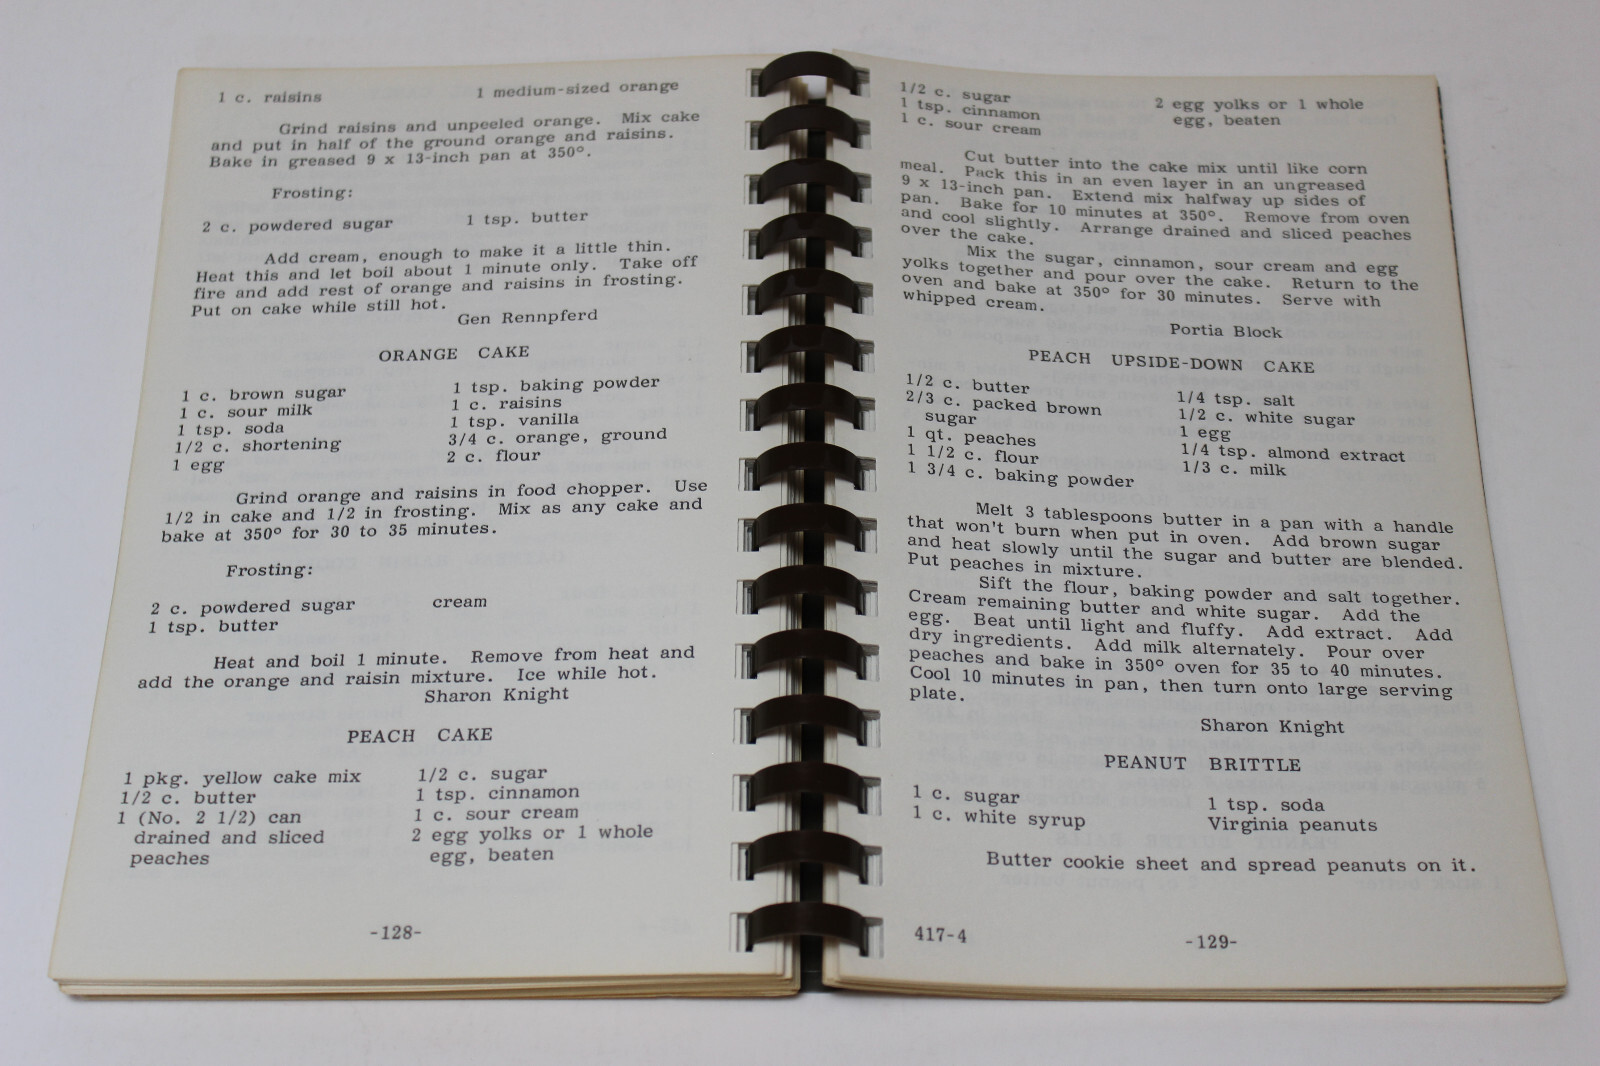 1 c. raisins 1 medium-sized orange
Grind raisins and unpeeled orange. Mix cake
and put in half of the ground orange and raisins.
Bake in greased 9 x 13-inch pan at 350°.
Frosting:
2 c. powdered sugar 1 tsp. butter
Add cream, enough to make it a little thin.
Heat this and let boil about 1 minute only. Take off
fire and add rest of orange and raisins in frosting.
Put on cake while still hot.
Gen Rennpferd
ORANGE CAKE
1 c. brown sugar 1 tsp. baking powder
1 c. sour milk 1 c. raisins
1 tsp. soda 1 tsp. vanilla
1/2 c. shortening 3/4 c. orange, ground
1 egg 2 c. flour
Grind orange and raisins in food chopper. Use
1/2 in cake and 1/2 in frosting. Mix as any cake and
bake at 350° for 30 to 35 minutes.
Frosting:
2 c. powdered sugar cream
1 tsp. butter
Heat and boil 1 minute. Remove from heat and
add the orange and raisin mixture. Ice while hot.
Sharon Knight
PEACH CAKE
1 pkg. yellow cake mix 1/2 c. sugar
1/2 c. butter 1 tsp. cinnamon
1 (No. 2 1/2) can 1 c. sour cream
drained and sliced 2 egg yolks or 1 whole
peaches egg, beaten
-128-
1/2 c. sugar 2 egg yolks or 1 whole
1 tsp. cinnamon egg, beaten
1 c. sour cream
Cut butter into the cake mix until like corn
meal. Pack this in an even layer in an ungreased
9 x 13-inch pan. Extend mix halfway up sides of
pan. Bake for 10 minutes at 350°. Remove from oven
and cool slightly. Arrange drained and sliced peaches
over the cake.
Mix the sugar, cinnamon, sour cream and egg
yolks together and pour over the cake. Return to the
oven and bake at 350° for 30 minutes. Serve with
whipped cream.
Portia Block
PEACH UPSIDE-DOWN CAKE
1/2 c. butter 1/4 tsp. salt
2/3 c. packed brown 1/2 c. white sugar
sugar 1 egg
1 qt. peaches 1/4 tsp. almond extract
1 1/2 c. flour 1/3 c. milk
1 3/4 c. baking powder
Melt 3 tablespoons butter in a pan with a handle
that won't burn when put in oven. Add brown sugar
and heat slowly until the sugar and butter are blended.
Put peaches in mixture.
Sift the flour, baking powder and salt together.
Cream remaining butter and white sugar. Add the
egg. Beat until light and fluffy. Add extract. Add
dry ingredients. Add milk alternately. Pour over
peaches and bake in 350° oven for 35 to 40 minutes.
Cool 10 minutes in pan, then turn onto large serving
plate.
Sharon Knight
PEANUT BRITTLE
1 c. sugar 1 tsp. soda
1 c. white syrup Virginia peanuts
Butter cookie sheet and spread peanuts on it.
417-4 -129-